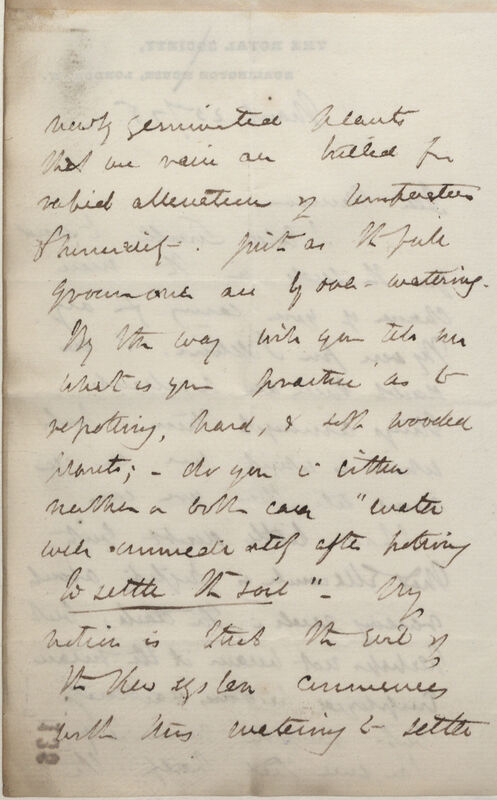 newly germinated plants
that we raise are killed for
rapid alternation of temperature
& humidity. just as the full
grown ones are by over-watering.
By the way will you tell me
what is your practice as to
repotting, hard, & soft wooded
plants; - do you in either
neither or both cases "water
well immediately after potting
to settle the soil" - My
notion is that the evil of
the Kew system commences
with this watering to settle
138